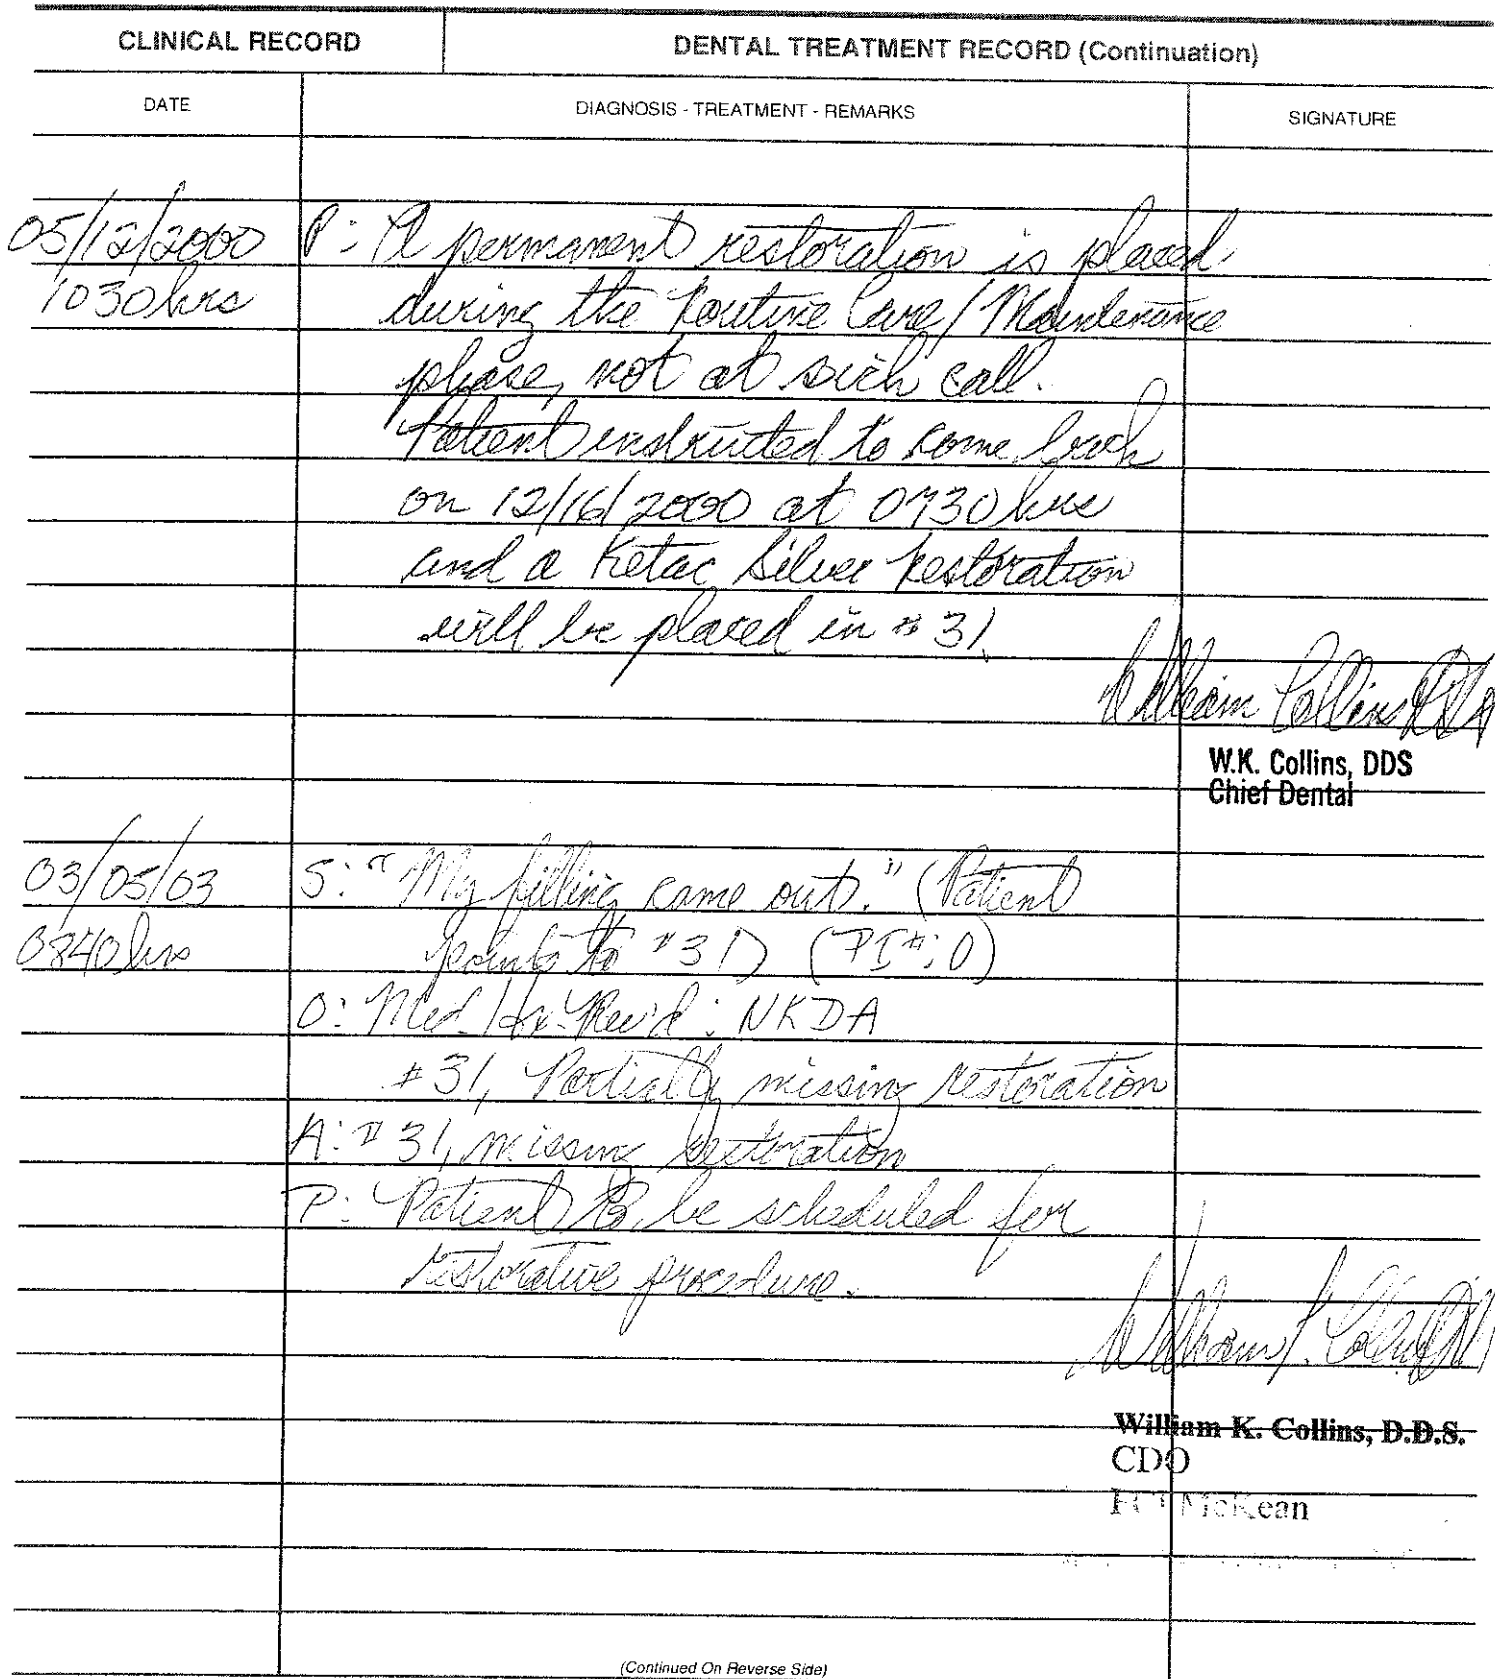 CLINICAL RECORD
DENTAL TREATMENT RECORD (Continuation)
DATE
DIAGNOSIS - TREATMENT - REMARKS
SIGNATURE
05/12/2000 P: A permanent restoration is placed
1030 hrs during the Routine Care/Maintenance
phase, not at sick call.
Patient instructed to come back
on 12/16/2000 at 0730 hrs
and a Ketac Silver Restoration
will be placed in #31.
William Collins DDS
W.K. Collins, DDS
Chief Dental
03/05/03 S: "My filling came out." (Patient
0840 hrs points to #31) (PI#: 0)
O: Med. Hx. Rev'd: NKDA
#31, Partially missing restoration
A: #31, missing restoration
P: Patient to be scheduled for
restorative procedure.
William K. Collins, D.D.S.
CDO
FCI McKean
(Continued On Reverse Side)